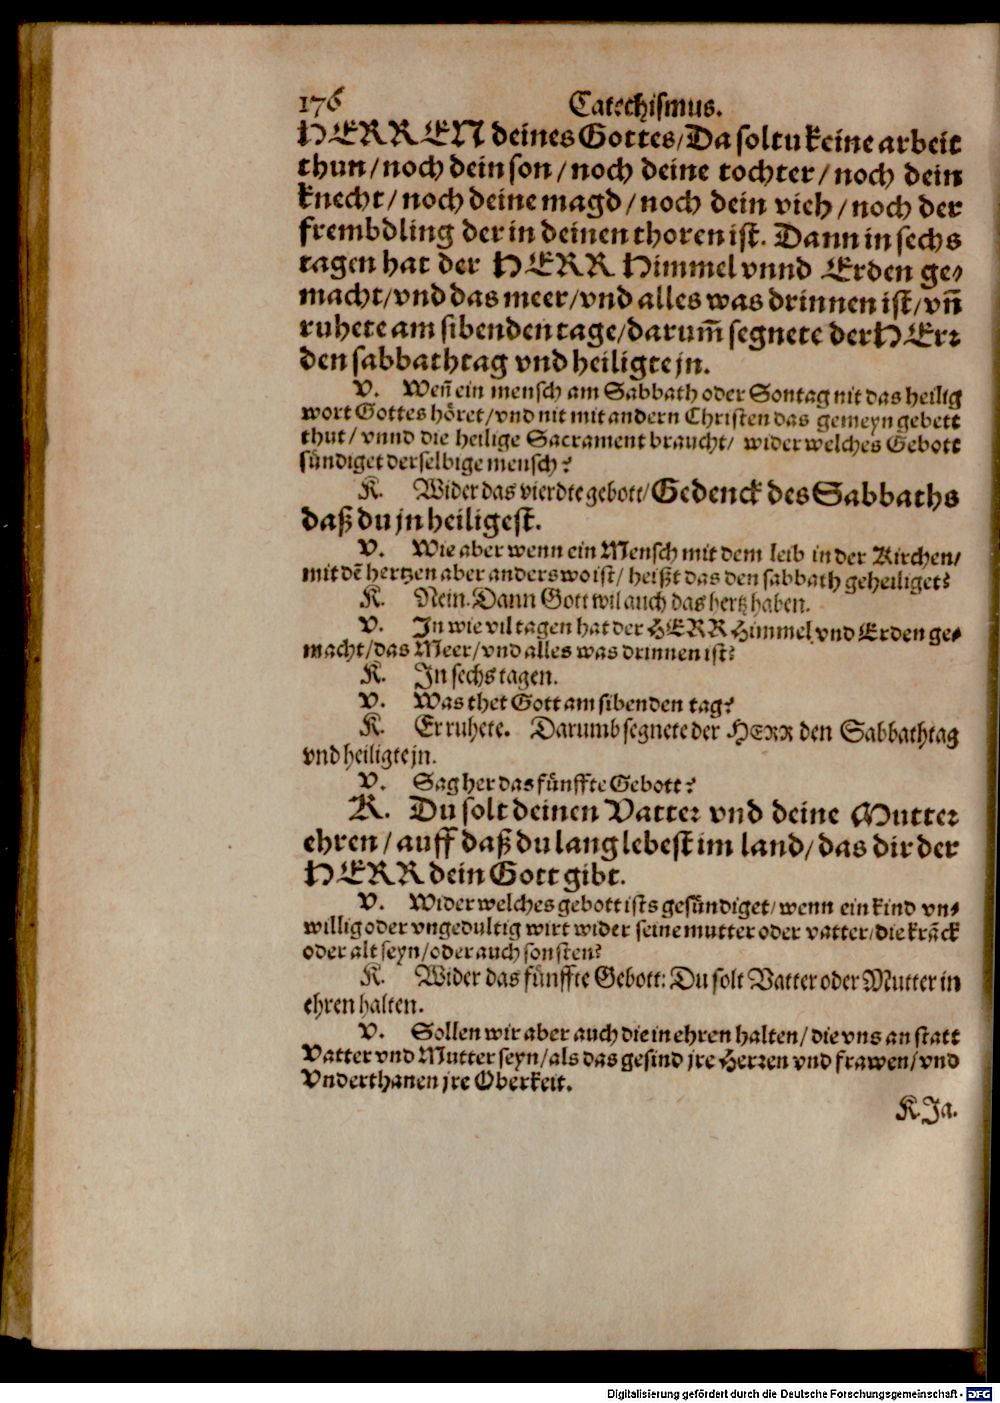 176 Catechismus.
HERREN deines Gottes/Da soltu keine arbeit
thun/noch dein son/noch deine tochter/noch dein
knecht/noch deine magd/noch dein vieh/noch der
frembdling der in deinen thoren ist. Dann in sechs
tagen hat der HERR Himmel vnnd Erden ge⸗
macht/vnd das meer/vnd alles was drinnen ist/vñ
ruhete am sibenden tage/darum̃ segnete der HErr
den sabbathtag vnd heiligte jn.
V. Weñ ein mensch am Sabbath oder Sontag nit das heilig
wort Gottes höret/vnd nit mit andern Christen das gemeyn gebett
thut/vnnd die heilige Sacrament braucht/ wider welches Gebott
sündiget derselbige mensch?
K. Wider das vierdte gebott/Gedenck des Sabbaths
daß du jn heiligest.
V. Wie aber wenn ein Mensch mit dem leib in der Kirchen/
mit dẽ hertzen aber anderswo ist/heißt das den sabbath geheiliget?
K. Nein. Dann Gott wil auch das hertz haben.
V. In wie vil tagen hat der HERR Himmel vnd Erden ge⸗
macht/das Meer/vnd alles was drinnen ist?
K. In sechs tagen.
V. Was thet Gott am sibenden tag?
K. Er ruhete. Darumb segnete der HERR den Sabbathtag
vnd heiligte jn.
V. Sag her das fünffte Gebott?
K. Du solt deinen Vatter vnd deine Mutter
ehren/auff daß du lang lebest im land/das dir der
HERR dein Gott gibt.
V. Wider welches gebott ists gesündiget/wenn ein kind vn⸗
willig oder vngedultig wirt wider seine mutter oder vatter/die krãck
oder alt seyn/oder auch sonsten?
K. Wider das fünffte Gebott: Du solt Vatter oder Mutter in
ehren halten.
V. Sollen wir aber auch die in ehren halten/die vns an statt
Vatter vnd Mutter seyn/als das gesind jre Herren vnd frawen/vnd
Vnderthanen jre Oberkeit.
K. Ja.
Digitalisierung gefördert durch die Deutsche Forschungsgemeinschaft - DFG